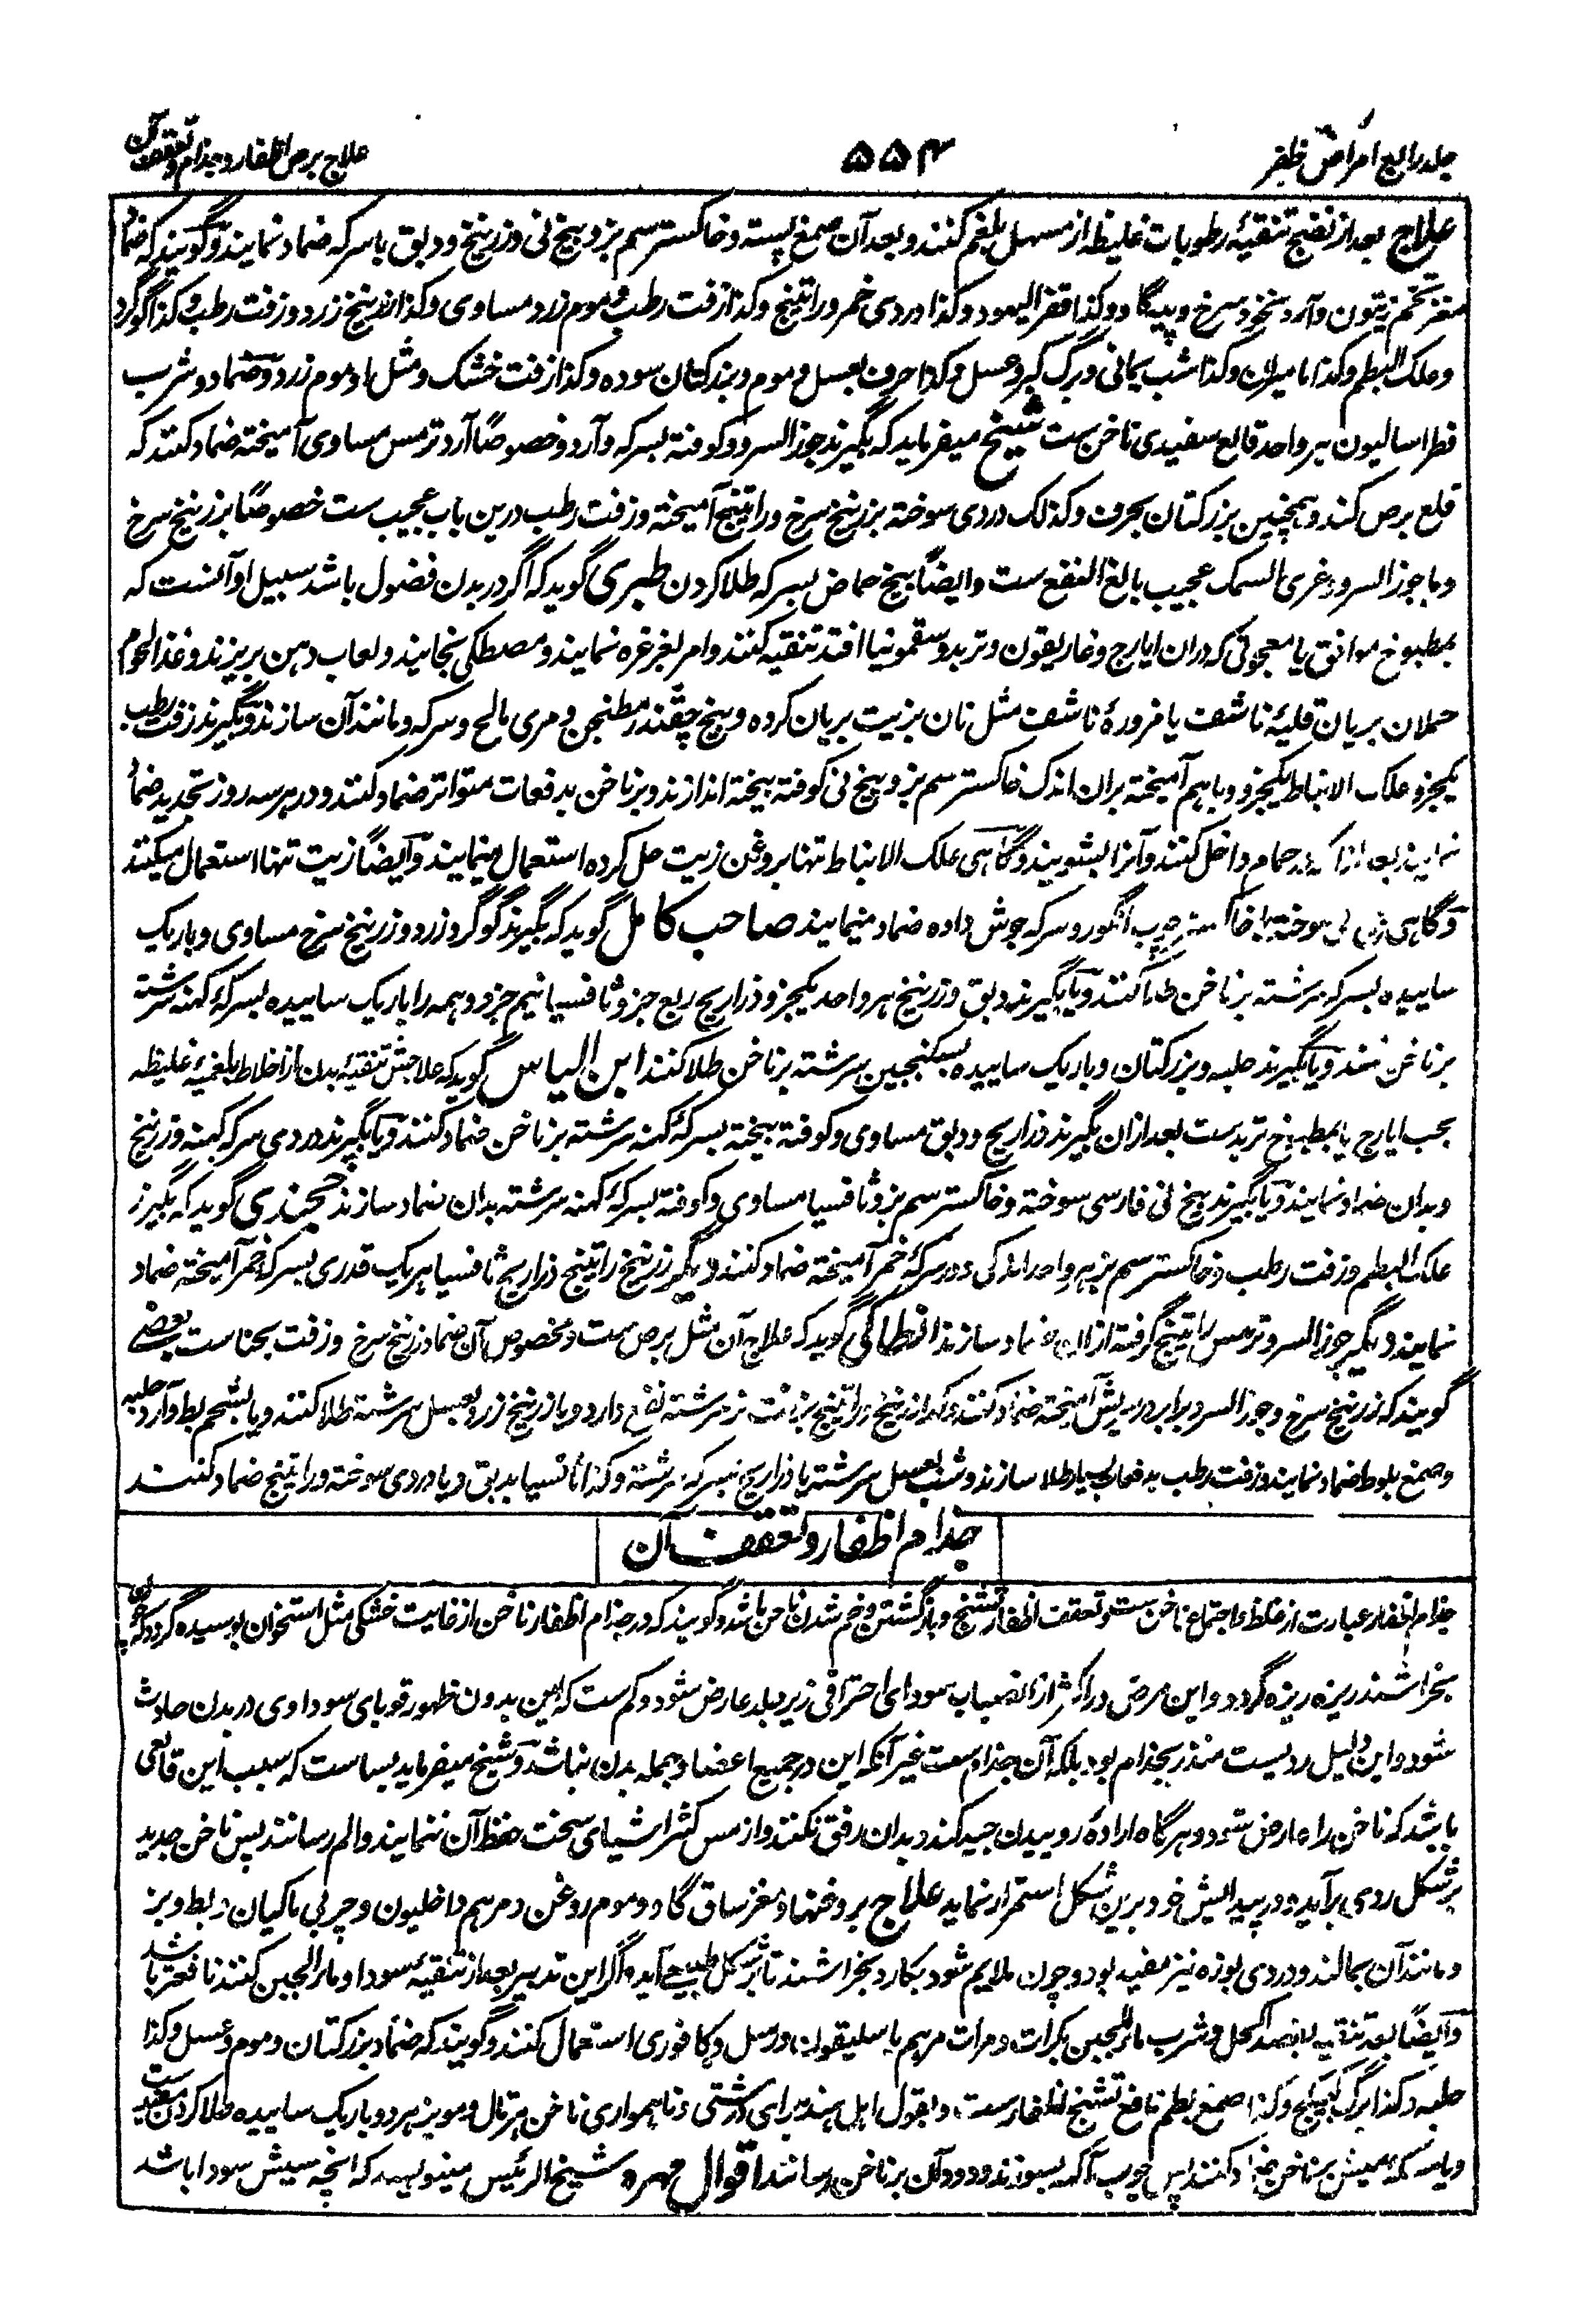 جلد رابع امراض ظفر
۵۵۴
علاج برص اظفار و جذام و تعقف آن
علاج بعد از نضج تنقیۀ رطوبات غلیظه از مسهل بلغم کنند و بعد آن صمغ پسته و خاکستر سم بز و بیخ نی و زرنیخ و دبق با سرکه ضماد نمایند و گویند که ضماد
مغز تخم زیتون و آرد نخود سرخ و پیه گاو و کذا قفر الیهود و کذا دردی خمر و راتینج و کذا زفت رطب و موم زرد مساوی و کذا زرنیخ زرد و زفت رطب و کذا گوگرد
و علک البطم و کذا مامیران و کذا شب یمانی و برگ کبر و عسل و کذا حرف بعسل و موم و بزر کتان سوده و کذا زفت خشک و مثل او موم زرد و ضماد و شرب
فطراسالیون هر واحد قالع سفیدی ناخن ست شیخ میفرماید که بگیرند جوز السرو و کوفته بسرکه و آرد و خصوصاً آرد ترمس مساوی آمیخته ضماد کنند که
قلع برص کند و همچنین بزر کتان بحرف و کذلک دردی سوخته بزرنیخ سرخ و راتینج آمیخته و زفت رطب درین باب عجیب ست خصوصاً بزرنیخ سرخ
و با جوز السرو و غری السمک عجیب بالغ النفع ست و ایضاً بیخ حماض بسرکه طلا کردن طبری گوید که اگر در بدن فضول باشد سبیل او آنست که
بمطبوخ موافق یا معجونی که دران ایارج و غاریقون و تربد و سقمونیا افتد تنقیه کنند و امر بغرغره نمایند و مصطکی بخایند و لعاب دهن بریزند و غذا لحوم
حملان بریان قلیۀ ناشف یا مزورۀ ناشف مثل نان بزیت بریان کرده و بیخ چقندر مطنجن و مری مالح و سرکه و مانند آن سازند و بگیرند زفت رطب
یکجزو علک الانباط یکجزو و باهم آمیخته بران اندک خاکستر سم بز و بیخ نی کوفته بیخته اندازند و بر ناخن بدفعات متواتر ضماد کنند و در هر سه روز تجدید ضماد
نمایند بعد ازانکه در حمام داخل کنند و آنرا بشویند و گاهی علک الانباط تنها بروغن زیت حل کرده استعمال مینمایند و ایضاً زیت تنها استعمال میکنند
و گاهی سوخته با خاکستر چوب انگور و سرکه جوش داده ضماد مینمایند صاحب کامل گوید که بگیرند گوگرد زرد و زرنیخ سرخ مساوی و باریک
ساییده بسرکه سرشته بر ناخن طلا کنند و یا بگیرند دبق و زرنیخ هر واحد یکجزو ذراریح ربع جزو ثافسیا نیم جزو و همه را باریک ساییده بسرکۀ کهنه سرشته
بر ناخن نهند و یا بگیرند حلبه و بزر کتان و باریک ساییده بسکنجبین سرشته بر ناخن طلا کنند ابن الیاس گوید که علاجش تنقیۀ بدن از اخلاط بلغمیۀ غلیظه
بحب ایارج یا بمطبوخ تربد ست بعد ازان بگیرند ذراریح و دبق مساوی و کوفته بیخته بسرکۀ کهنه سرشته بر ناخن ضماد کنند و یا بگیرند دردی سرکه کهنه و زرنیخ
و بدان ضماد نمایند و یا بگیرند بیخ نی فارسی سوخته و خاکستر سم بز و ثافسیا مساوی و کوفته بسرکۀ کهنه سرشته بدان ضماد سازند خجندی گوید که بگیرند
علک البطم و زفت رطب و خاکستر سم بز هر واحد اندکی و در سرکۀ خمر آمیخته ضماد کنند دیگر زرنیخ راتینج ذراریح ثافسیا هر یک قدری بسرکۀ خمر آمیخته ضماد
نمایند دیگر جوز السرو ترمس راتینج گرفته ضماد سازند انطاکی گوید که علاج آن مثل برص ست و مخصوص آن ضماد زرنیخ سرخ و زفت بحنا ست بعضی
گویند که زرنیخ سرخ و جوز السرو برابر در سریش آمیخته ضماد کنند و کذا زرنیخ و راتینج بزفت تر سرشته نفع دارد و یا زرنیخ زرد بعسل سرشته طلا کنند و یا بشحم بط و آرد حلبه
و صمغ بلوط ضماد نمایند و زفت رطب بدفعات بسیار طلا سازند و شب بعسل سرشته یا ذراریح بسرکه سرشته و کذا ثافسیا بدبق و یا دردی سوخته و راتینج ضماد کنند
جذام اظفار و تعقف آن
جذام اظفار عبارت از غلظ و اجتماع ناخن ست و تعقف اظفار تشنج و بازگشتن و خم شدن ناخن باشد و گویند که در جذام اظفار ناخن از غایت خشکی مثل استخوان بوسیده گردد که چون
بخراشند ریزه ریزه گردد و این مرض در اکثر از انصباب سودای احتراقی زیر جلد عارض شود و کم ست که این بدون ظهور قوبای سوداوی در بدن حادث
شود و این دلیل ردیست منذر بجذام بود بلکه آن جذام ست غیر آنکه این در جمیع اعضا و جمله بدن نباشد و شیخ میفرماید بسا است که سبب این قلعی
باشد که ناخن را عارض شود و هرگاه ارادۀ روییدن جید کند و بدان رفق نکنند و از مس کثر اشیای سخت حفظ آن ننمایند و الم رسانند پس ناخن جدید
بر شکل ردی برآید و در پیدایش خود برین شکل استمرار نماید علاج بروغنها و مغز ساق گاو و موم روغن و مرهم داخلیون و چربی ماکیان و بط و بز
و مانند آن بمالند و دردی بوزه نیز مفید بود و چون ملایم شود بکارد بخراشند تا بر شکل طبیعی آید و اگر این تدبیر بعد از تنقیۀ سودا و ماء الجبن کنند نافعتر باشد
و ایضاً بعد تنقیه بفصد اکحل و شرب ماء الجبن بکرات و مرات مرهم باسلیقون و رسل و کافوری استعمال کنند و گویند که ضماد بزر کتان و موم و عسل و کذا
حلبه و کذا برگ کبیکج و کذا صمغ بطم نافع تشنج اظفار ست و بقول اهل هند برای درشتی و ناهمواری ناخن هرتال و مویز هر دو باریک ساییده طلا کردن مفید ست
و یا مسکه میش بر ناخن ضماد کنند پس چوب آک بسوزند و دود آن بر ناخن رسانند اقوال مهره شیخ الرئیس مینویسد که آنچه سببش سودا باشد